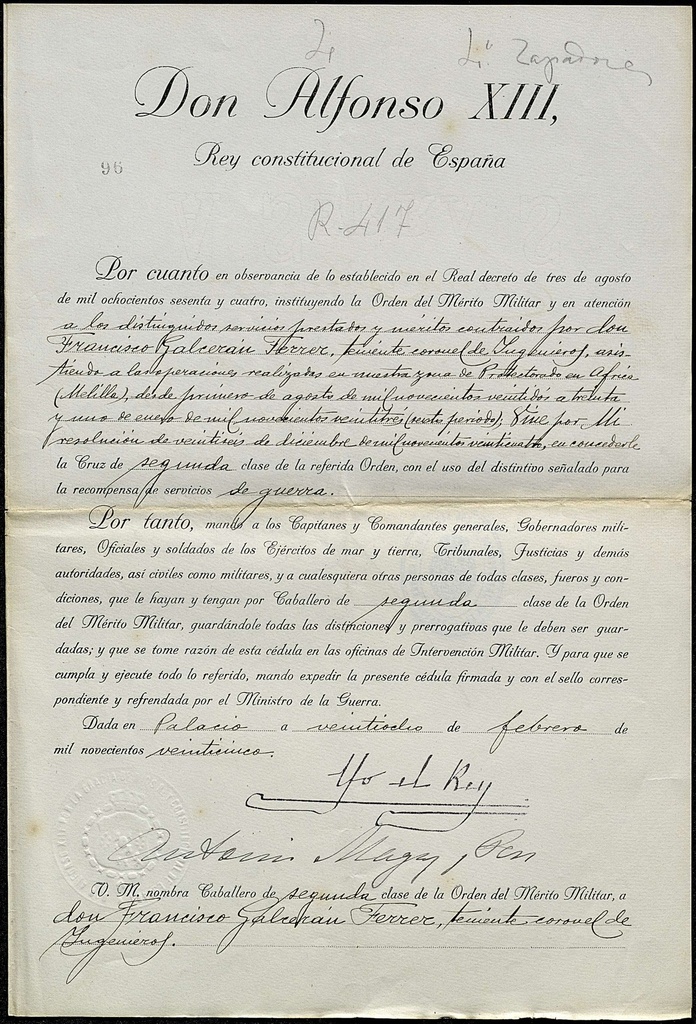 4
4º Zapadores
Don Alfonso XIII,
Rey constitucional de España
96
R-417
Por cuanto en observancia de lo establecido en el Real decreto de tres de agosto
de mil ochocientos sesenta y cuatro, instituyendo la Orden del Mérito Militar y en atención
a los distinguidos servicios prestados y méritos contraidos por don
Francisco Galcerán Ferrer, teniente coronel de Ingenieros, asis-
tiendo a las operaciones realizadas en nuestra zona de Protectorado en Africa
(Melilla), desde primero de agosto de mil novecientos veintidos a treinta
y uno de enero de mil novecientos veintitres (sexto periodo); Vine por Mi
resolución de veintiseis de diciembre de mil novecientos veinticuatro, en concederle
la Cruz de segunda clase de la referida Orden, con el uso del distintivo señalado para
la recompensa de servicios de guerra.
Por tanto, mando a los Capitanes y Comandantes generales, Gobernadores mili-
tares, Oficiales y soldados de los Ejércitos de mar y tierra, Tribunales, Justicias y demás
autoridades, así civiles como militares, y a cualesquiera otras personas de todas clases, fueros y con-
diciones, que le hayan y tengan por Caballero de segunda clase de la Orden
del Mérito Militar, guardándole todas las distinciones y prerrogativas que le deben ser guar-
dadas; y que se tome razón de esta cédula en las oficinas de Intervención Militar. Y para que se
cumpla y ejecute todo lo referido, mando expedir la presente cédula firmada y con el sello corres-
pondiente y refrendada por el Ministro de la Guerra.
Dada en Palacio a veintiocho de febrero de
mil novecientos veinticinco.
Yo el Rey
Antonio Magaz
V. M. nombra Caballero de segunda clase de la Orden del Mérito Militar, a
don Francisco Galcerán Ferrer, teniente coronel de
Ingenieros.